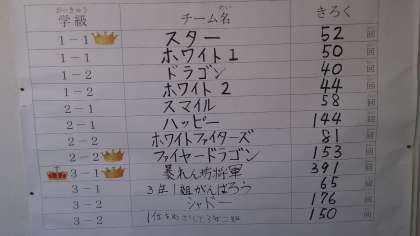 がっきゅう めい
学級 チーム名 きろく
1－1 スター 52 回
1－1 ホワイト1 50 回
1－2 ドラゴン 40 回
1－2 ホワイト2 44 回
2－1 スマイル 58 回
2－1 ハッピー 144 回
2－2 ホワイトファイターズ 81 回
2－2 ファイヤードラゴン 153 回
3－1 暴れん坊将軍 391 回
3－1 3年1組がんばろう 65 回
3－2 シャド 176 回
3－2 1位をめざして3年2組 150 回